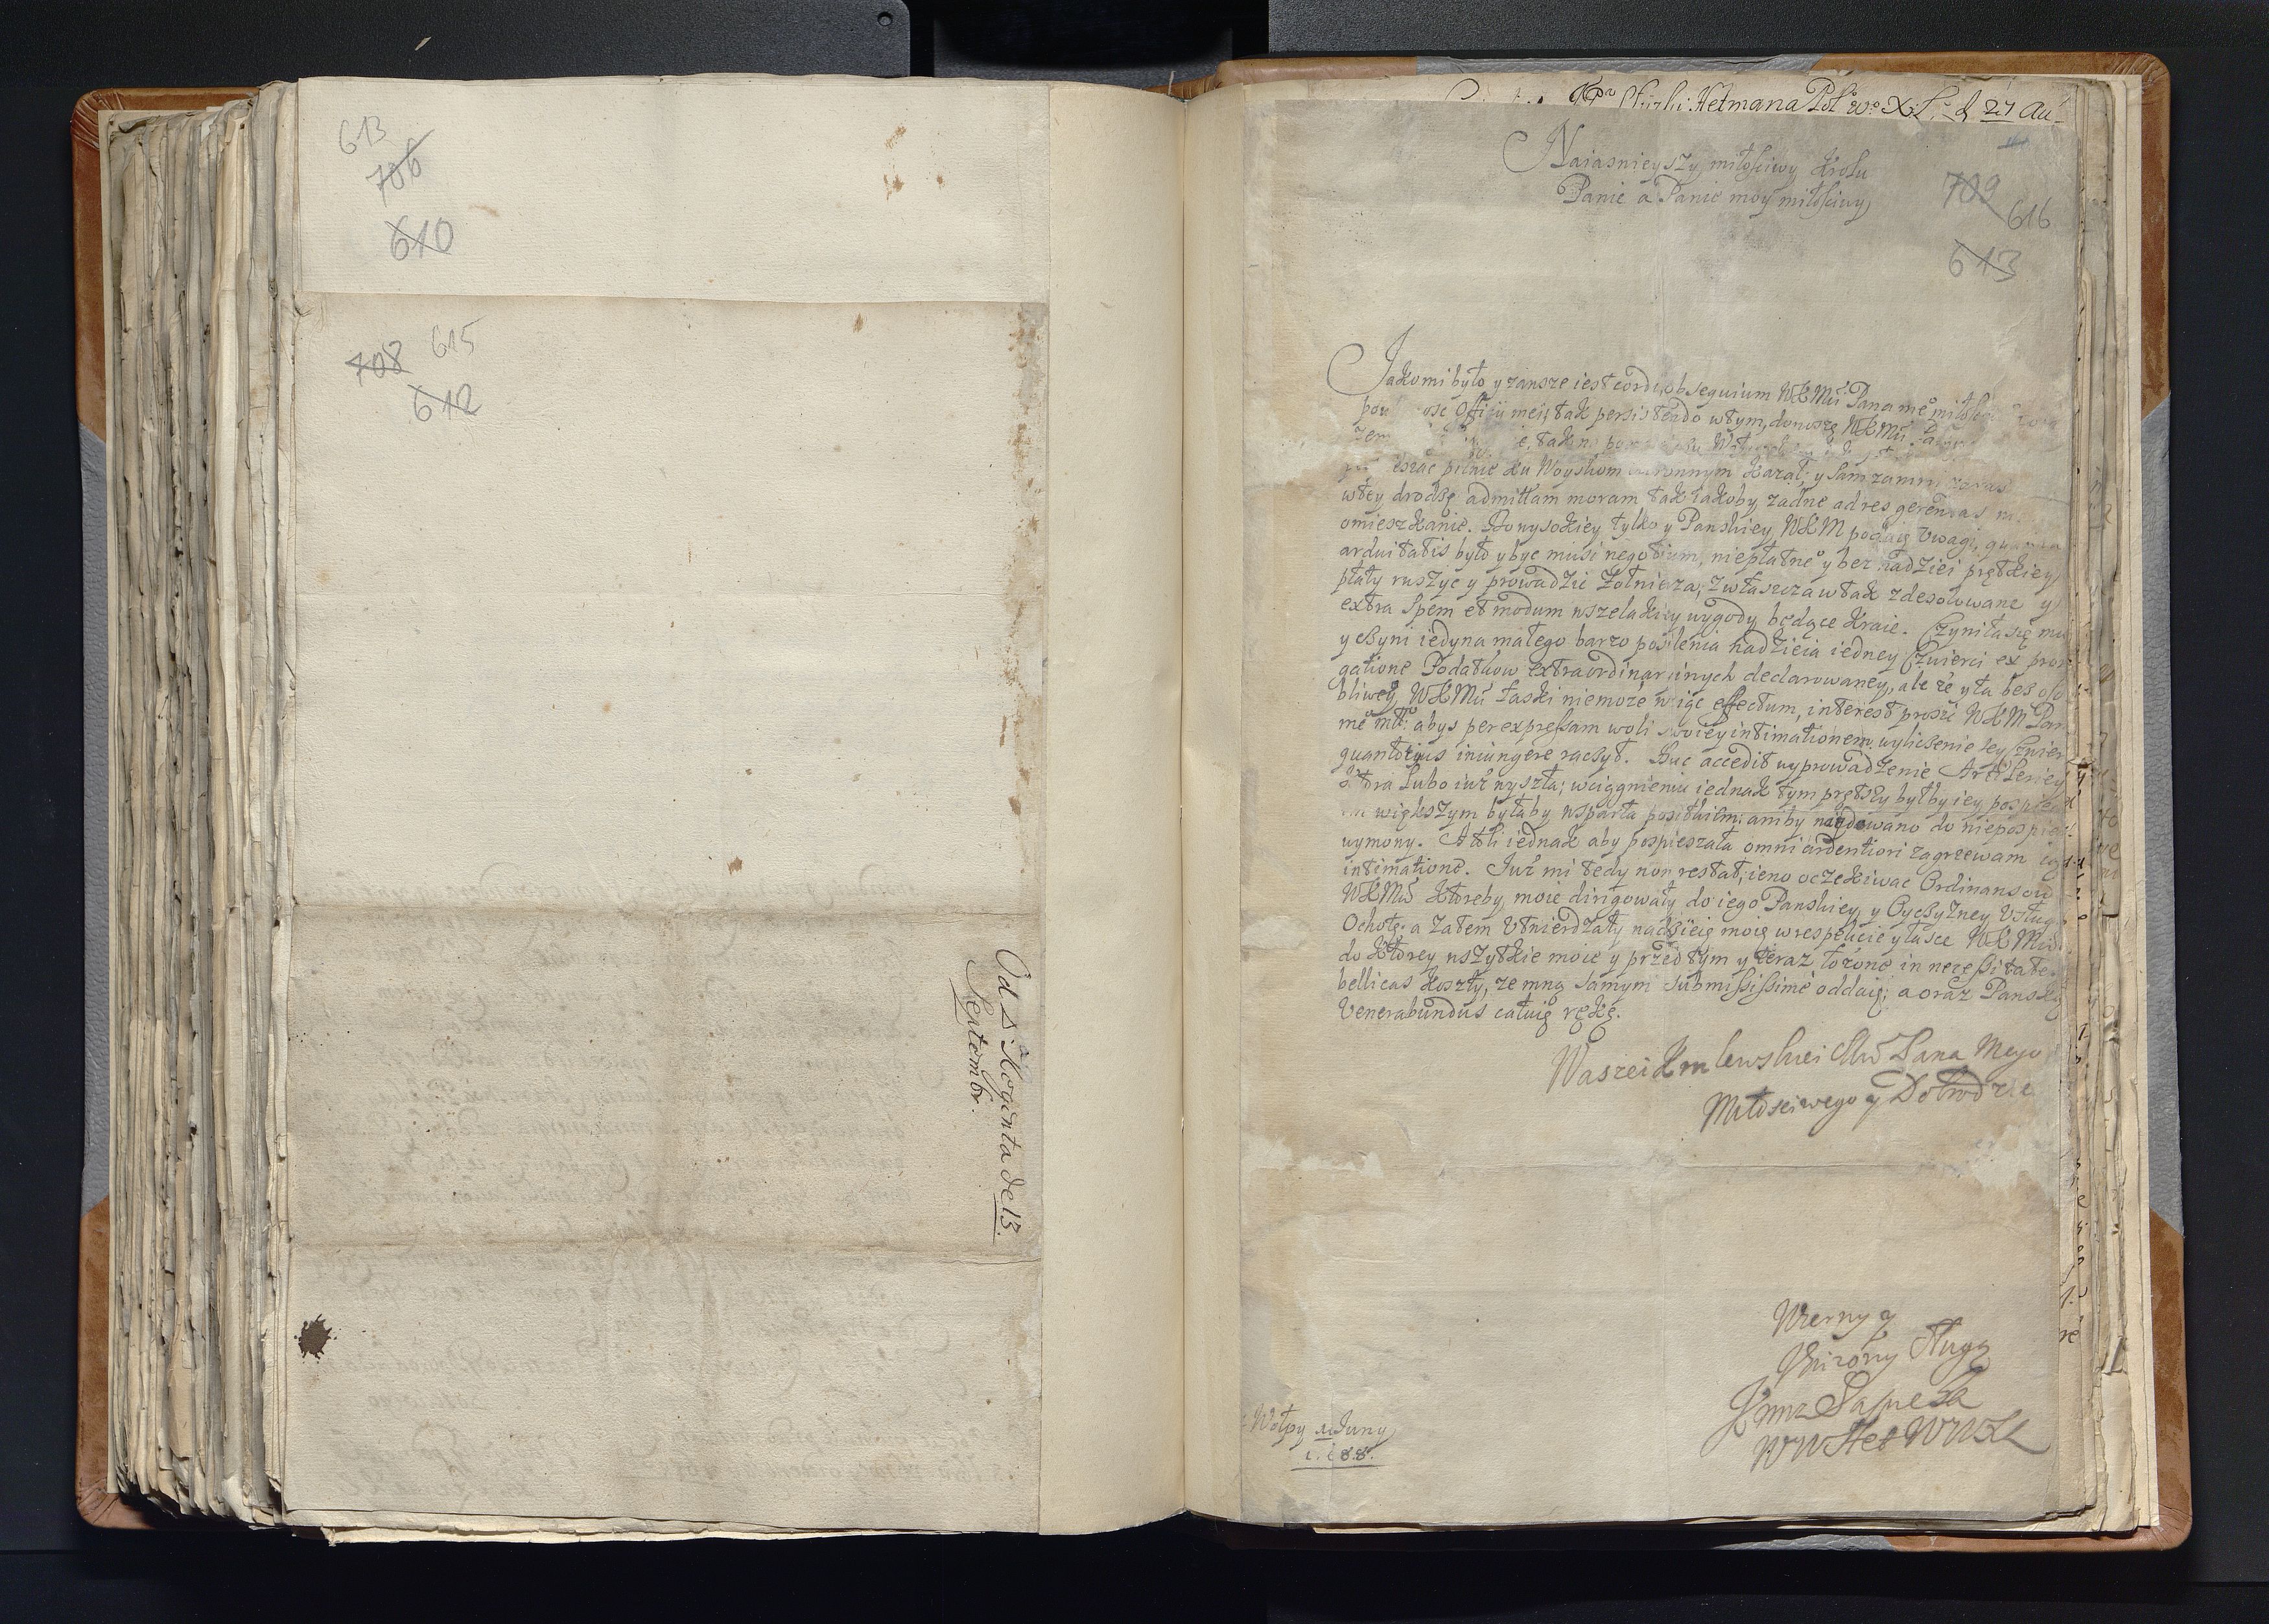 613
706
610
708 615
612
Od P. Hoginta de 13.
Septembr.
Hetmana Pol° W° X. L. d 27 Au-
Naiasnieyszy miłosciwy Krolu
Panie a Panie moy miłosciwy
709
616
613
Jako mi było y zawsze iest cordi, obsequium WKMći Pana mego
officij mei, tak persistendo w tym, donoszę WKMći
pilnie ku Woyskom Koronnym kazał; y sam zemną zaraz
w tey drodze admittam moram tak iakoby zadne ad res gerendas
omieszkanie. Do wysokiey tylko y Panskiey WKM podaię Uwagi, quanta
arduitatis było y byc musi negotium, niepłatne° y bez nadziei prętkiey
płaty ruszyc y prowadzic Zołnierza; zwłaszcza w tak zdesolowane y
extra Spem et modum wszelakiey wygody będące Kraie. Czyniła się mu
y czyni iedyna małego barzo posilenia nadzieia iedney Czwierci ex
gatione Podatkow extraordinaryinych declarowaney, ale ze y ta bes oso
bliwey WKMći łaski niemoże wziąc effectum, interest prosic WKM Pan
me° mł: abys per expressam woli swoiey intimationem, wyliczenie tey Czwier
quantocyus iniungere raczył. Huc accedit wyprowadzenie Artilleriey
ktora lubo iuż wyszła; w ciągnieniu iednak tym prętszy byłby iey
większym byłaby wsparta posiłkiem; aniby naydowano do niepospiechu
wymowy. Atoli iednak aby pospieszała omni ardentiori zagrzewam
intimatione. Juz mi tedy non restat, ieno oczekiwac Ordinansow
WKMći ktoreby moie dirigowały do iego Panskiey y Oyczyzney Usług
Ochotę; a zatem Utwierdzały nadzieię moię w respekcie y łasce WKMći.
do ktorey wszytkie moie y przed tym y teraz łożone in necessitates
bellicas koszty, ze mną samym submississimè oddaię; a oraz Panską
Venerabundus całuię rękę.
Waszei Krolewskiei Mći Pana Mego
Miłosciwego y Dobrodzie
Wierny y
Unizony Sługa
Kzmrz Sapieha
WW Het WWXL
z Wołpy Juny
1688.